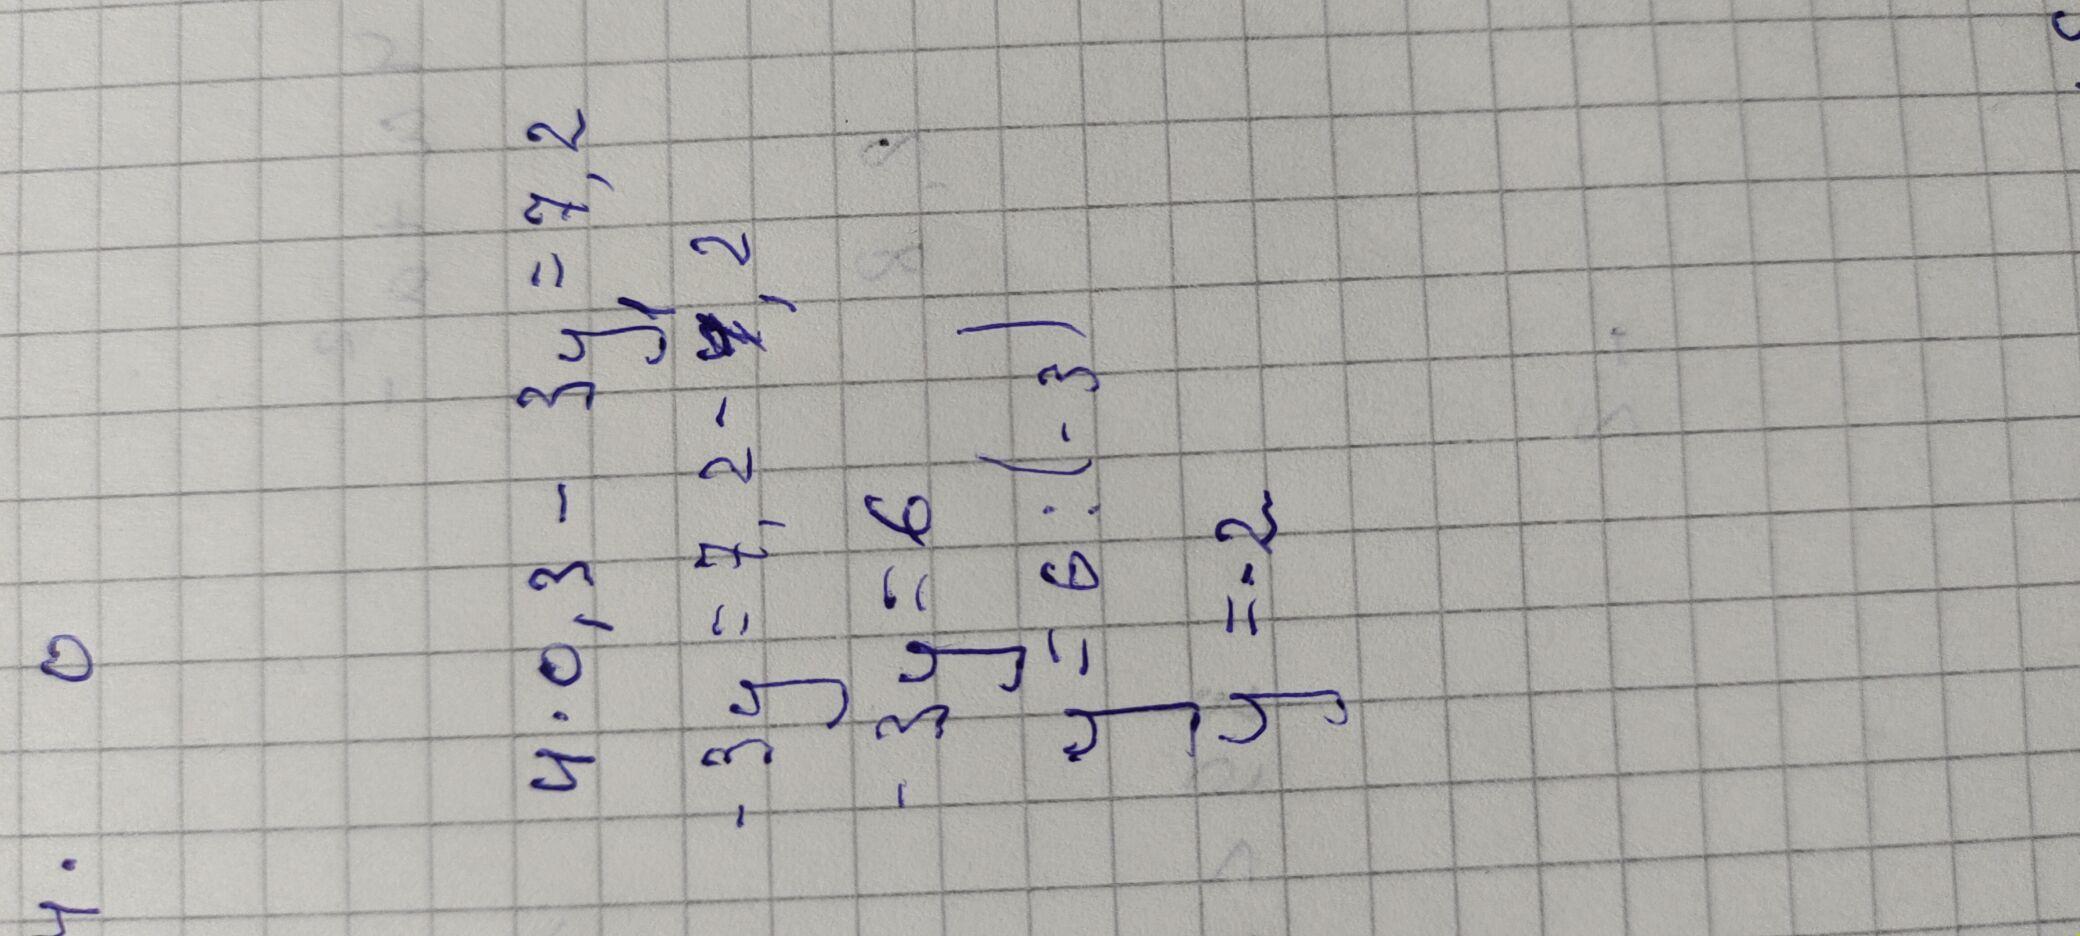 4 · 0,3 - 3y = 7,2
- 3y = 7,2 - 1,2
- 3y = 6
y = 6 : (-3)
y = -2